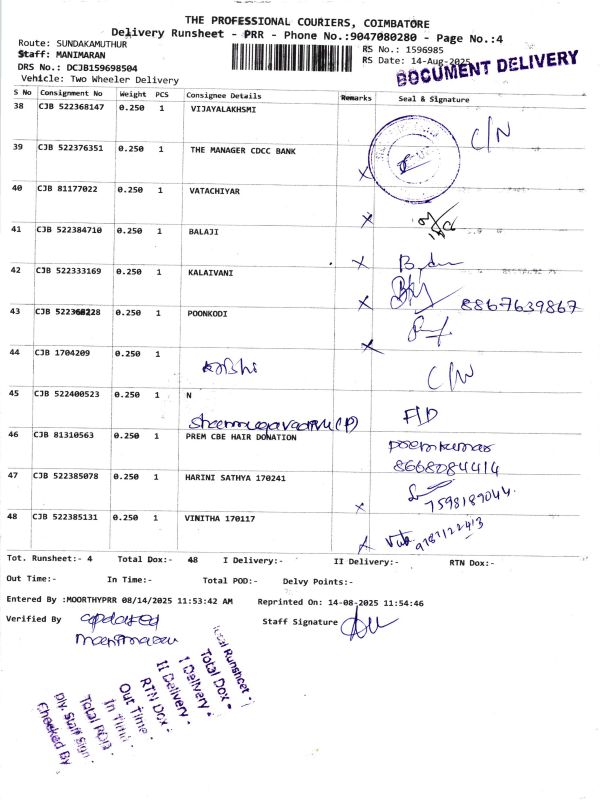 THE PROFESSIONAL COURIERS, COIMBATORE
Delivery Runsheet - PRR - Phone No.:9047080280 - Page No.:4
Route: SUNDAKAMUTHUR
RS No.: 1596985
Staff: MANIMARAN
RS Date: 14-Aug-2025
DRS No.: DCJB159698504
DOCUMENT DELIVERY
Vehicle: Two Wheeler Delivery
S No Consignment No Weight PCS Consignee Details Remarks Seal & Signature
38 CJB 522368147 0.250 1 VIJAYALAKHSMI C/N
39 CJB 522376351 0.250 1 THE MANAGER CDCC BANK X
40 CJB 81177022 0.250 1 VATACHIYAR X
41 CJB 522384710 0.250 1 BALAJI X
42 CJB 522333169 0.250 1 KALAIVANI X 8867639867
43 CJB 522368228 0.250 1 POONKODI X
44 CJB 1704209 0.250 1 C/N
45 CJB 522400523 0.250 1 N F/D
46 CJB 81310563 0.250 1 PREM CBE HAIR DONATION Premkumar
8668084414
47 CJB 522385078 0.250 1 HARINI SATHYA 170241 X 7598189044.
48 CJB 522385131 0.250 1 VINITHA 170117 X 9787122413
Tot. Runsheet:- 4 Total Dox:- 48 I Delivery:- II Delivery:- RTN Dox:-
Out Time:- In Time:- Total POD:- Delvy Points:-
Entered By :MOORTHYPRR 08/14/2025 11:53:42 AM Reprinted On: 14-08-2025 11:54:46
Verified By updated Staff Signature
manimaran
Total Runsheet -
Total Dox -
I Delivery -
II Delivery -
RTN Dox -
Out Time -
In Time -
Total POD -
Dly. Staff Sign -
Checked By